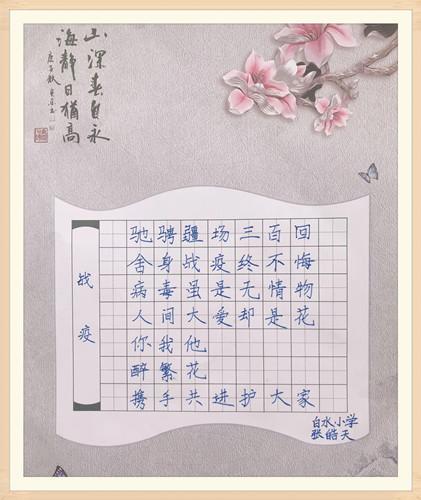 山深春自永
海静日犹高
庚子秋
战疫
驰骋疆场三百回
舍身战疫终不悔
病毒虽是无情物
人间大爱却是花
你我他
醉繁花
携手共进护大家
白水小学
张皓天